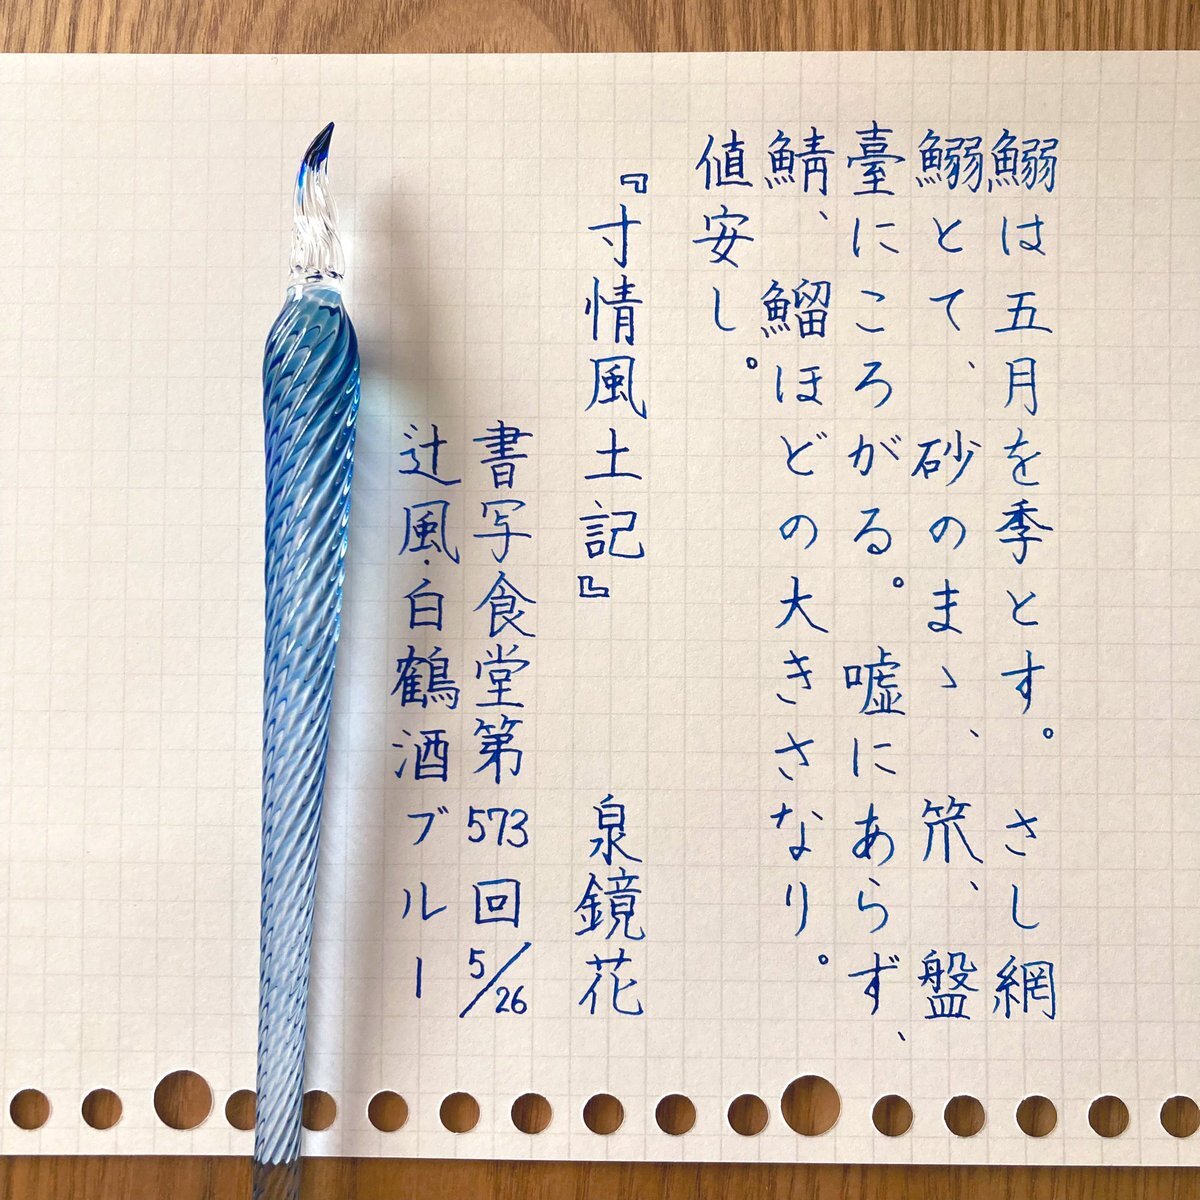 鰯は五月を季とす。さし網
鰯とて、砂のまゝ、笊、盤
臺にころがる。嘘にあらず、
鯖、鰡ほどの大きさなり。
値安し。
『寸情風土記』　泉鏡花
書写食堂第573回 5/26
辻風・白鶴酒ブルー